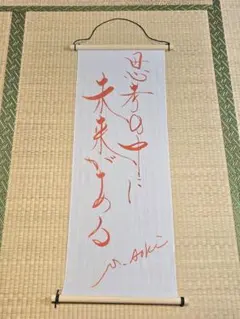 思考の中に
未来がある
M. Aoki